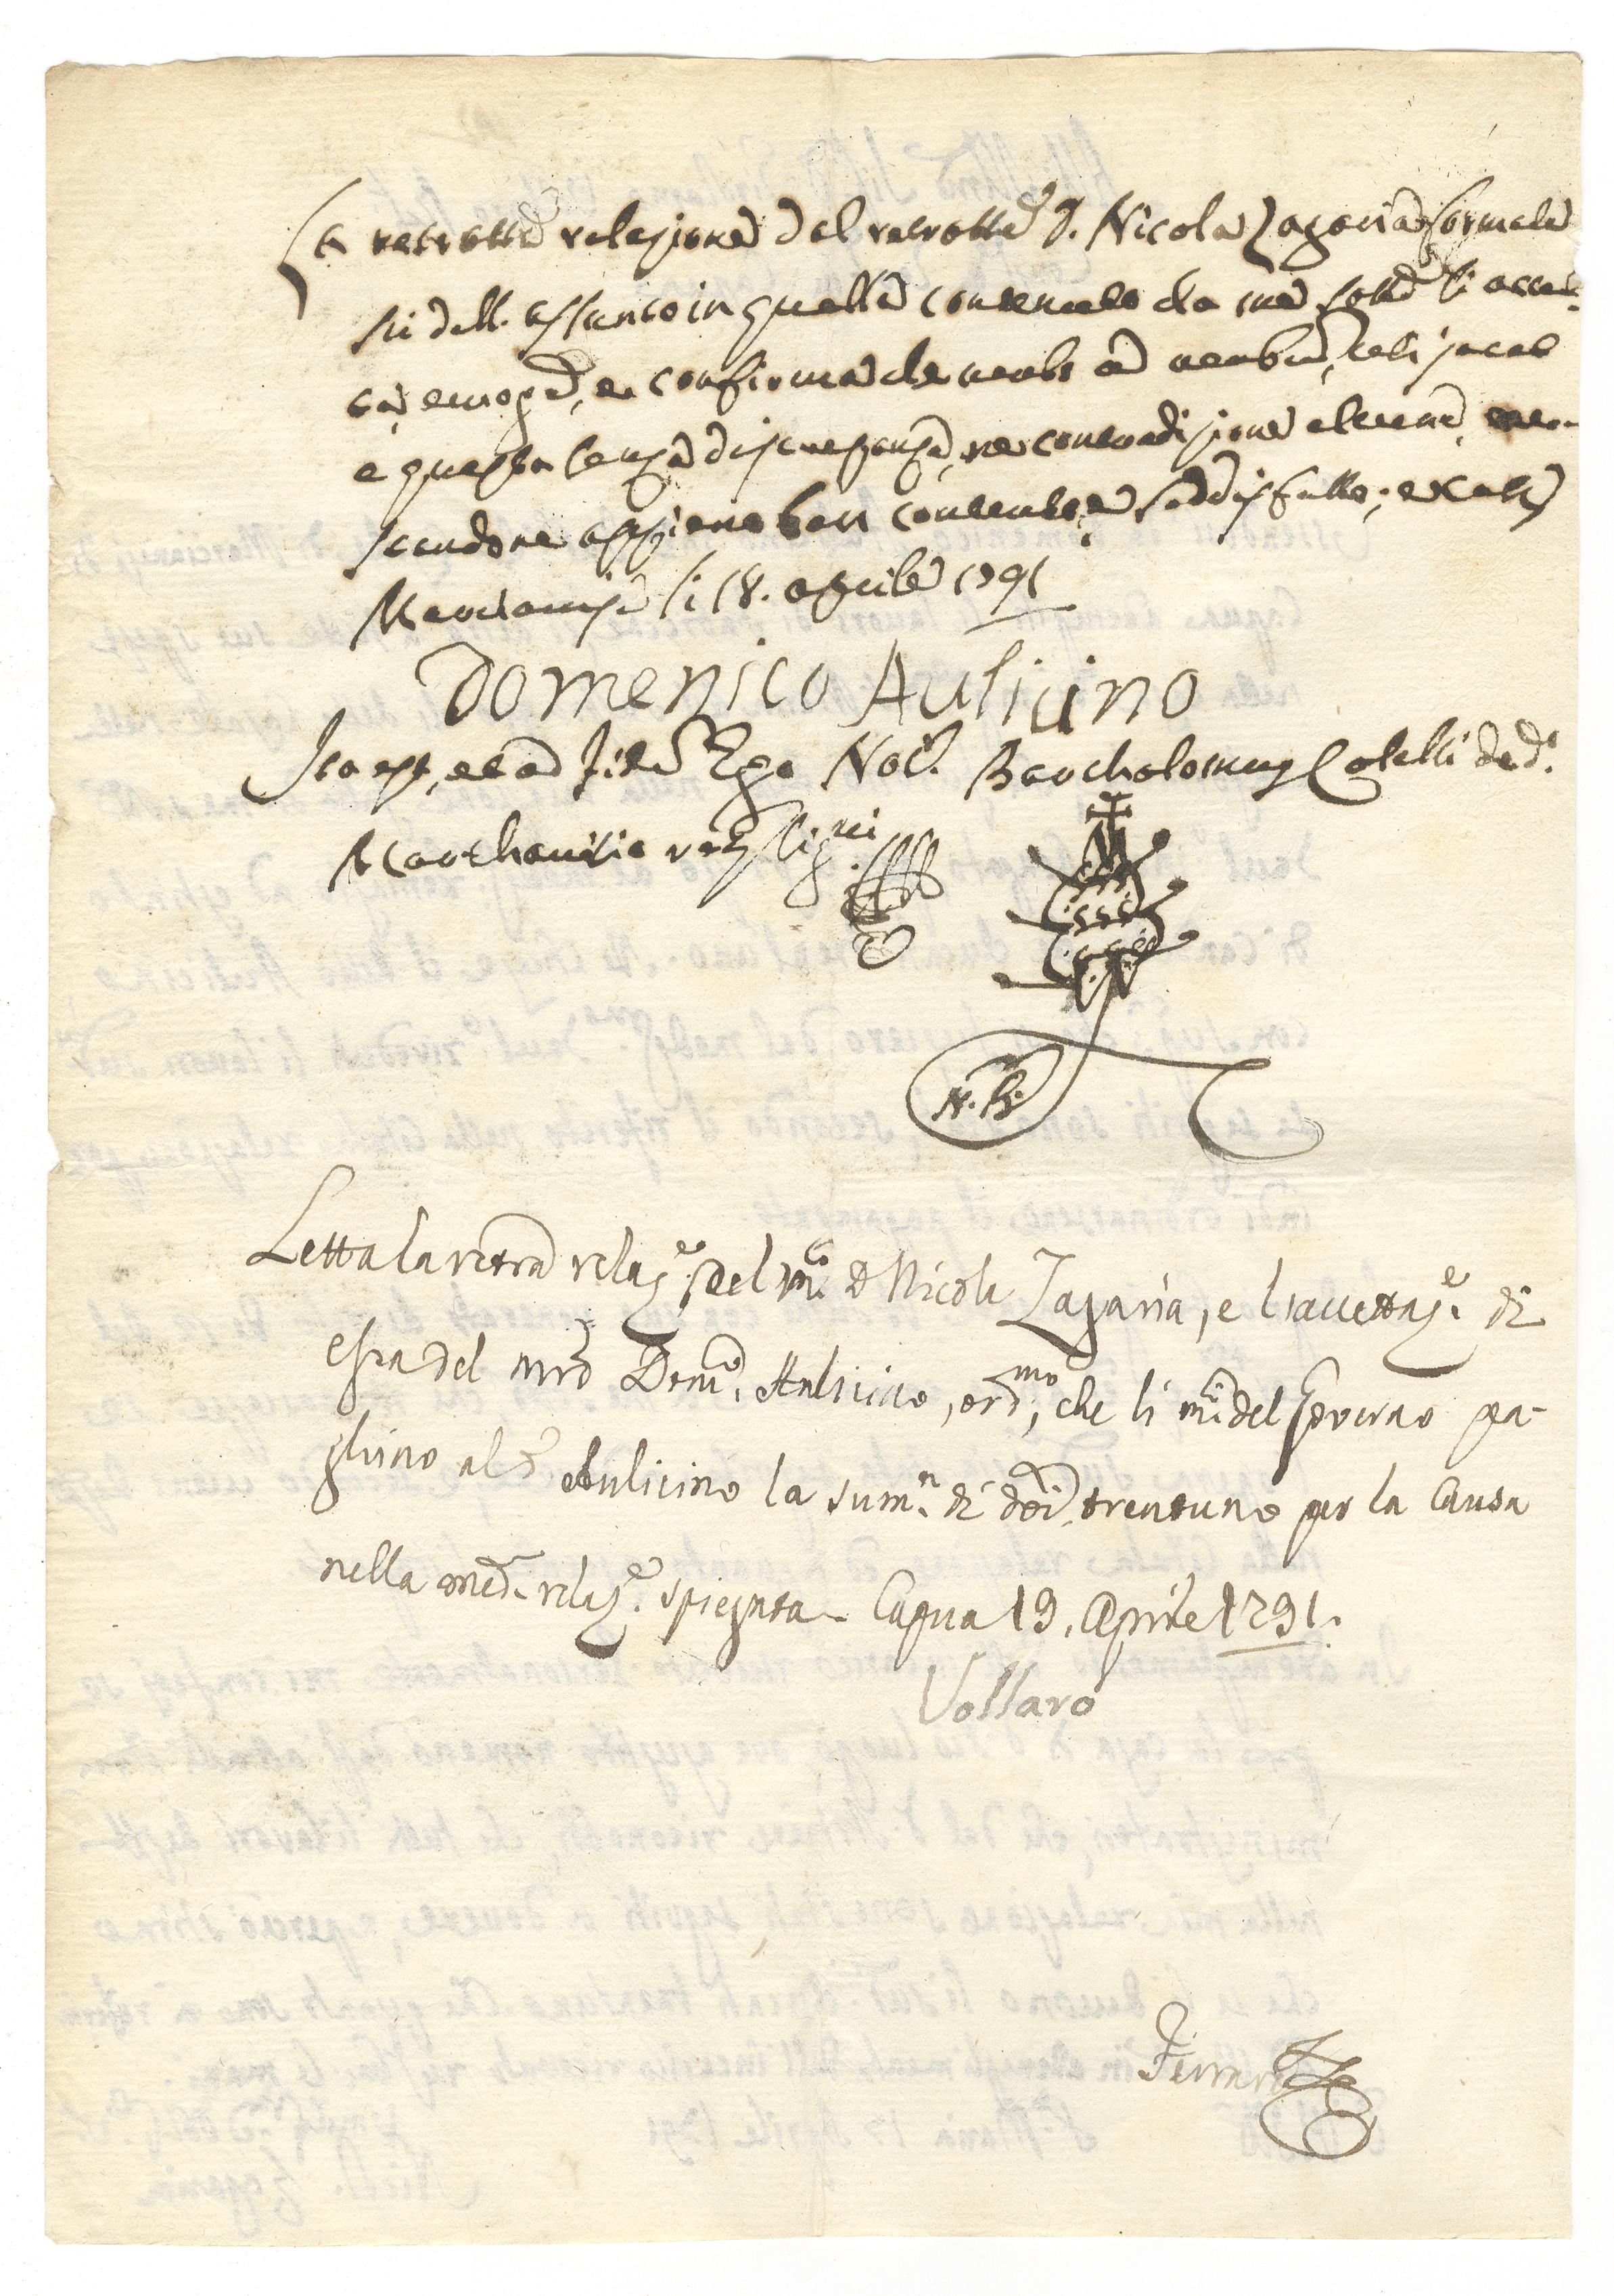 La retrotta relazione del retrotto D. Nicola Zagaria formata
su dell' assunto in quella contenuto da me sotto si accet-
ta, emoga, e confirma de verbo ad verbum, uti jacet
e questo senza discrepanza, ne contradizione alcuna,
scendone appieno ben contento, e soddisfatto; ex
Marcianise li 18. aprile 1791
Domenico Aulicino
Ita est, et ad fidem Ego Not. Bartholomeus Colelli de d.
Marthanisio reg. sig.vi
N. B.
Letta la retrod relaz.e del m.co D Nicola Zagaria, e l'accettaz.e di
essa del mro Dom.co Aulicino, ord.mo, che li m.ci del Governo pa-
ghino al d.o Aulicino la sum.a di d.ti trentuno per la causa
nella med.a relaz.e spiegata - Capua 19. Aprile 1791.
Vollaro
Ferrar